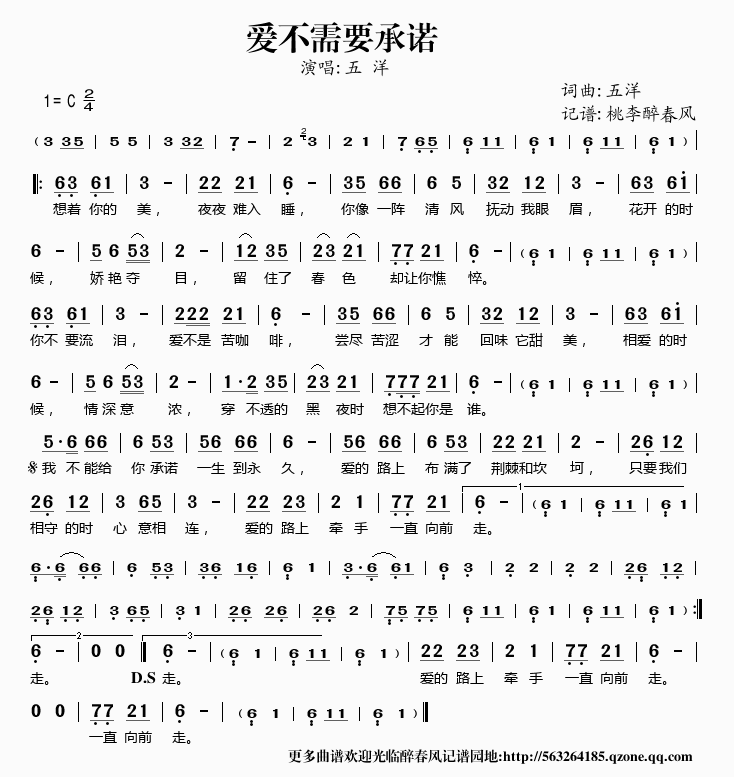 爱不需要承诺
演唱: 五 洋
1= C 2/4
词曲: 五洋
记谱: 桃李醉春风
( 3 35 | 5 5 | 3 32 | 7 - | 2 2 3 | 2 1 | 7 65 | 6 11 | 6 1 | 6 11 | 6 1 )
63 61 | 3 - | 22 21 | 6 - | 35 66 | 6 5 | 32 12 | 3 - | 63 61 |
想着 你的 美， 夜夜 难入 睡， 你像 一阵 清 风 抚动 我眼 眉， 花开 的时
6 - | 5 6 53 | 2 - | 12 35 | 23 21 | 77 21 | 6 - | ( 6 1 | 6 11 | 6 1 ) |
候， 娇艳夺 目， 留 住了 春 色 却让你憔 悴。
63 61 | 3 - | 222 21 | 6 - | 35 66 | 6 5 | 32 12 | 3 - | 63 61 |
你不 要流 泪， 爱不是 苦咖 啡， 尝尽 苦涩 才 能 回味 它甜 美， 相爱 的时
6 - | 5 6 53 | 2 - | 1·2 35 | 23 21 | 777 21 | 6 - | ( 6 1 | 6 11 | 6 1 ) |
候， 情深意 浓， 穿 不透的 黑 夜时 想不起你是 谁。
5·6 66 | 6 53 | 56 66 | 6 - | 56 66 | 6 53 | 22 21 | 2 - | 26 12 |
𝄋 我 不 能给 你 承诺 一生 到永 久， 爱的 路上 布 满了 荆棘和坎 坷， 只要我们
26 12 | 3 65 | 3 - | 22 23 | 2 1 | 77 21 | 1 6 - | ( 6 1 | 6 11 | 6 1 |
相守 的时 心 意相 连， 爱的 路上 牵 手 一直 向前 走。
6·6 66 | 6 53 | 36 16 | 6 1 | 3·6 61 | 6 3 | 2 2 | 2 2 | 26 12 |
26 12 | 3 65 | 3 1 | 26 26 | 26 2 | 75 75 | 6 11 | 6 1 | 6 11 | 6 1 ) :||
2 6 - | 0 0 | 3 6 - | ( 6 1 | 6 11 | 6 1 ) | 22 23 | 2 1 | 77 21 | 6 - |
走。 D.S 走。 爱的 路上 牵 手 一直 向前 走。
0 0 | 77 21 | 6 - | ( 6 1 | 6 11 | 6 1 ) ||
一直 向前 走。
更多曲谱欢迎光临醉春风记谱园地:http://563264185.qzone.qq.com